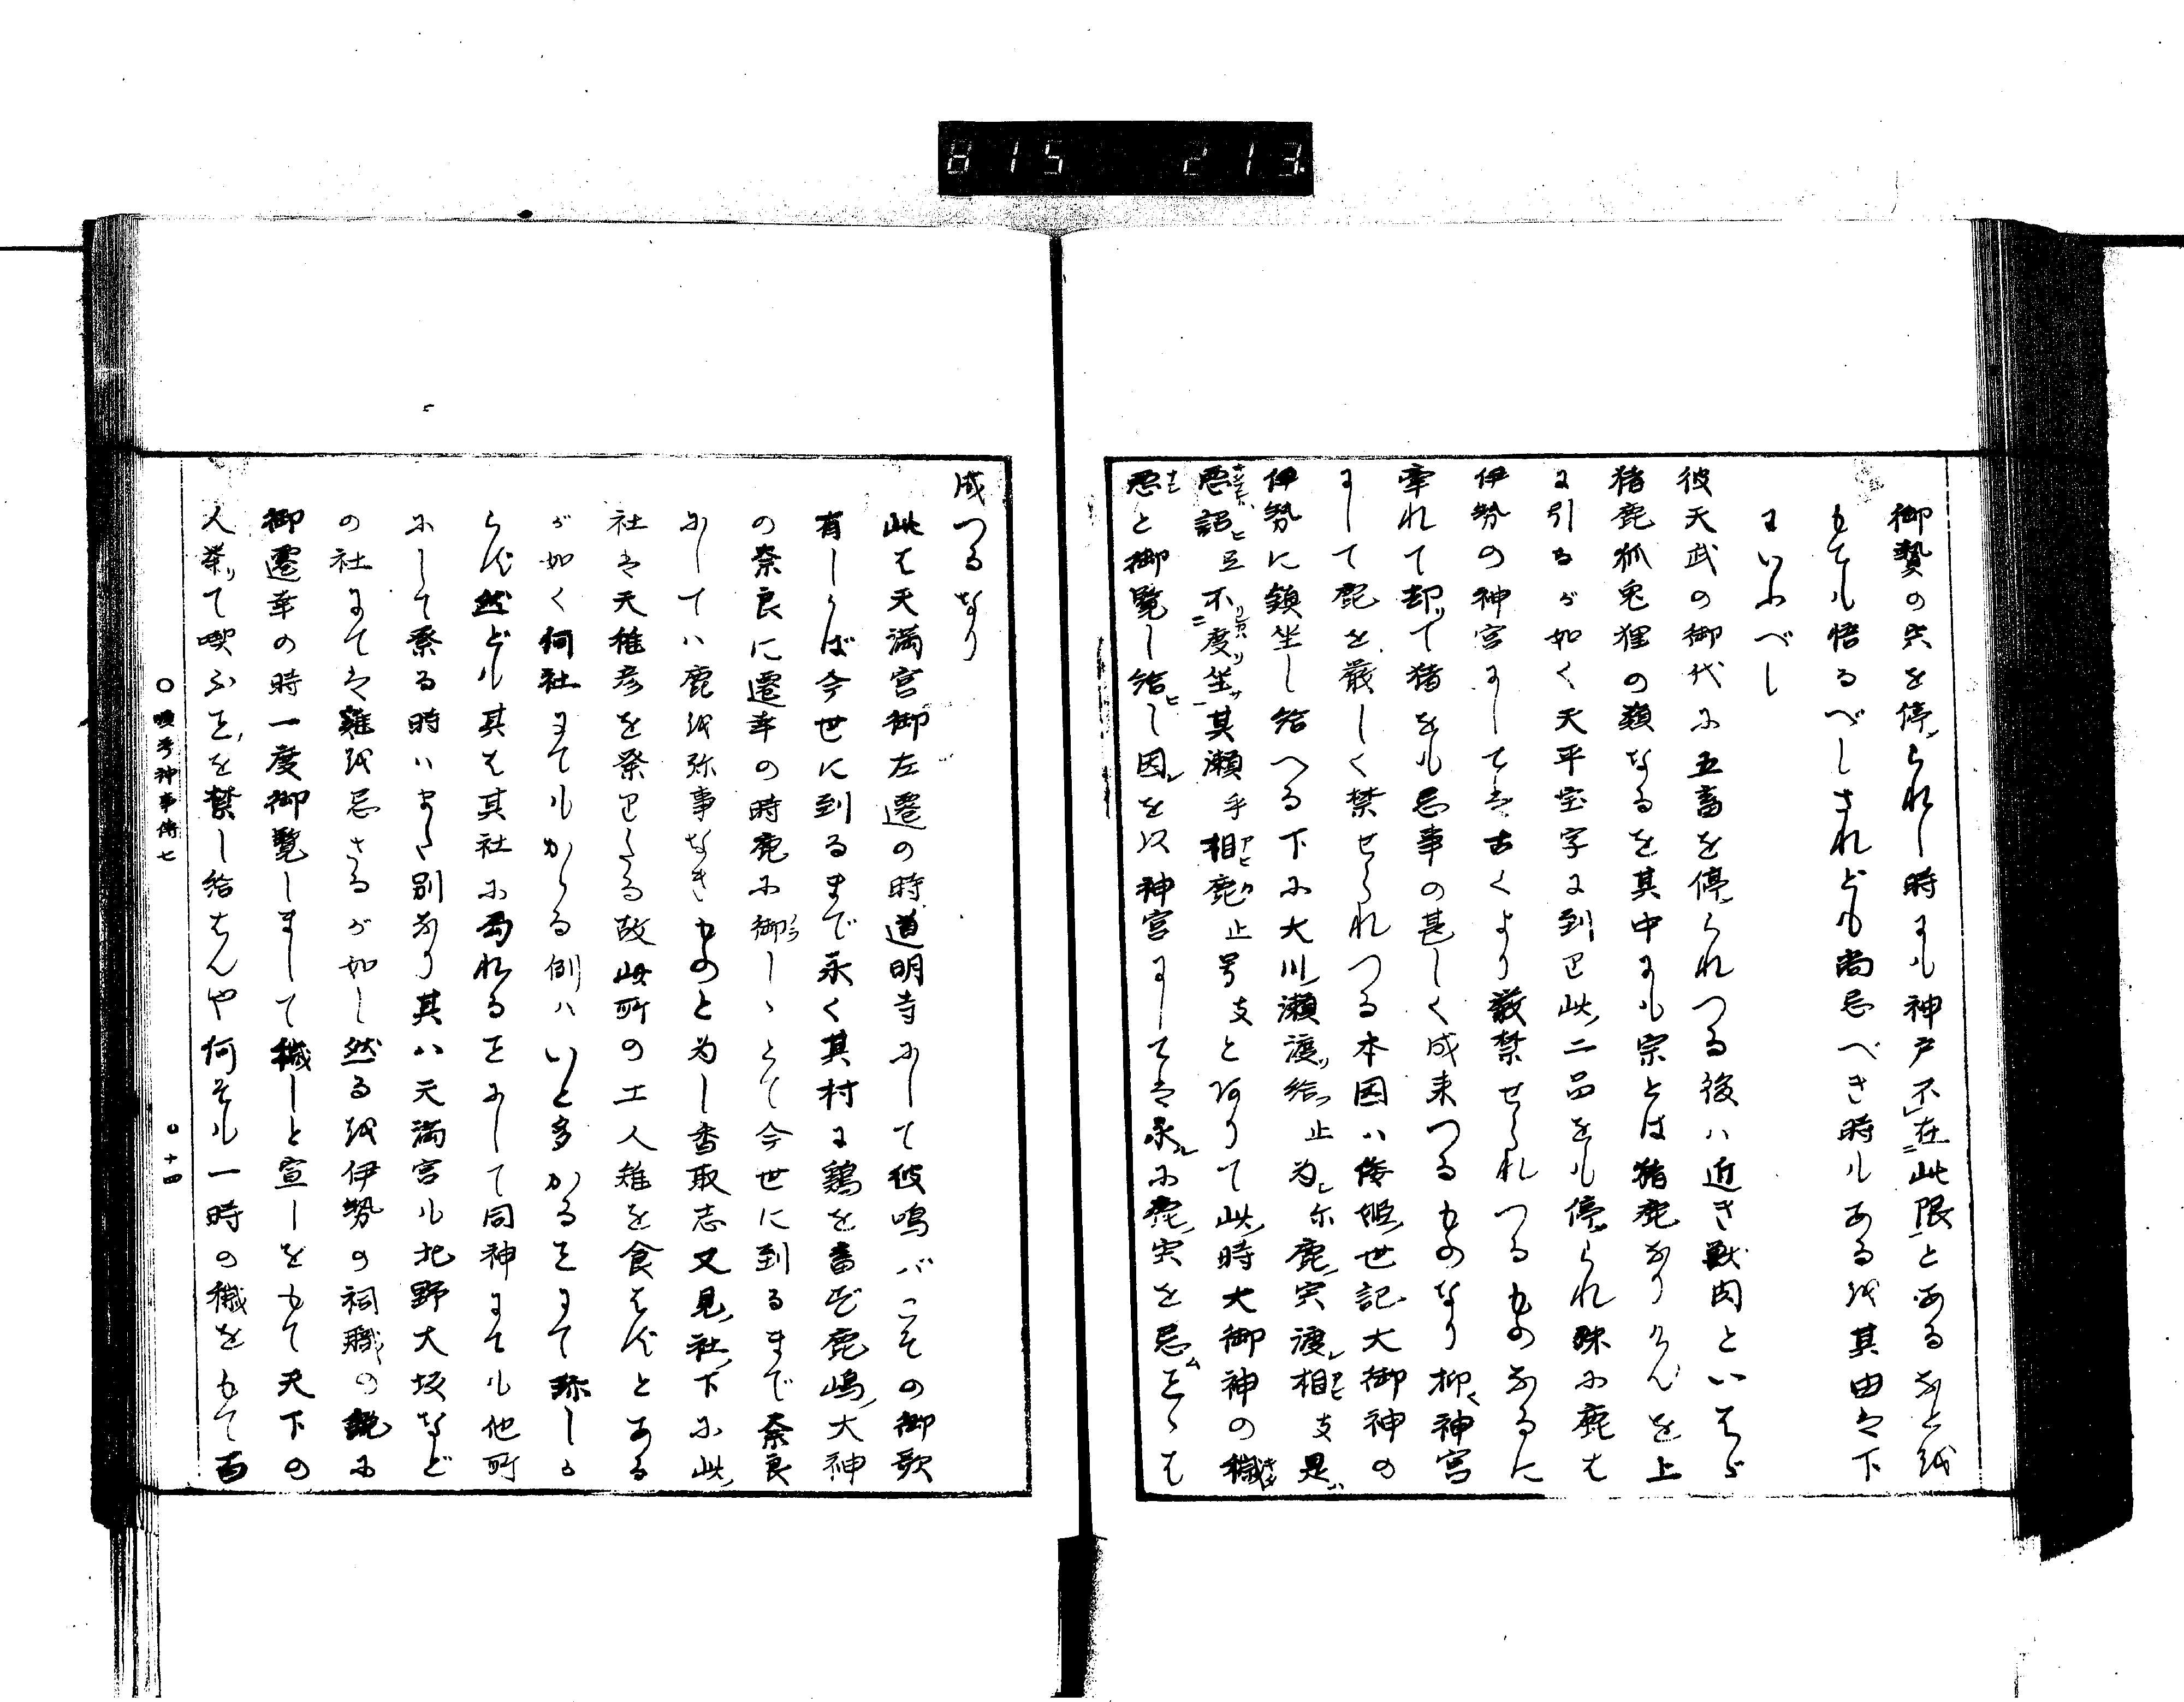 815 213
御贄の宍を停られし時にも神戸不在此限とあるなとを
もても悟るべしされども尚忌べき時もあるを其由は下
にいふべし
彼天武の御代に五畜を停られつる後ハ近き獣肉といはゞ
猪鹿狐兎狸の類なるを其中にも宗とは猪鹿なりけんを上
に引るが如く天平宝字に到て此二品をも停られ殊に鹿は
伊勢の神宮にしては古くより厳禁せられつるものなるに
牽れて却て猪をも忌事の甚しく成来つるものなり抑神宮
にして鹿を厳しく禁せられつる本因ハ倭姫世記大御神の
伊勢に鎮坐し給へる下に大川瀬渡給止為尓鹿宍渡相支是
悪詔豆不度坐其瀬乎相鹿止号支とありて此時大御神の穢
悪と御覧し給し因を以神宮にしては永に鹿宍を忌こゝは
成つるなり
此は天満宮御左遷の時道明寺にして彼鳴バこその御歌
有しかば今世に到るまで永く其村に鶏を畜ず鹿嶋大神
の奈良に遷幸の時鹿に御しゝとて今世に到るまで奈良
にしてハ鹿を弥事なきものと為し香取志又見社下に此
社は天稚彦を祭りたる故此所の工人雉を食はずとある
が如く何社にてもかゝる例ハいと多かることにて珍しか
らず然ども其は其社に因れることにして同神にても他所
にして祭る時ハまた別なり其ハ天満宮も北野大坂など
の社にては鶏を忌さるが如し然るを伊勢の祠職の説に
御遷幸の時一度御覧しまして穢しと宣しをもて天下の
人挙て喫ふことを禁し給はんや何そも一時の穢をもて百
○喪考神事傳七 ○十四